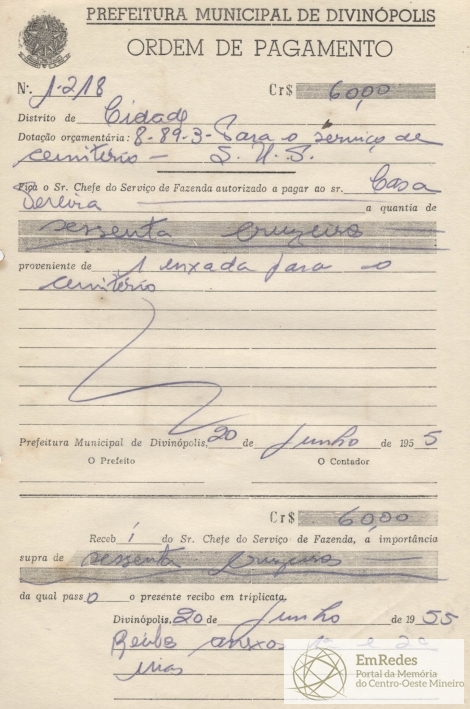 PREFEITURA MUNICIPAL DE DIVINÓPOLIS
ORDEM DE PAGAMENTO
N.º 1-218 Cr$ 60,00
Distrito de Cidade
Dotação orçamentária: 8-89-3- Para o serviço de
cemitério - S. U. S.
Fica o Sr. Chefe do Serviço de Fazenda autorizado a pagar ao sr. Casa
Pereira a quantia de
sessenta cruzeiros
proveniente de 1 enxada para o
cemitério
Prefeitura Municipal de Divinópolis, 20 de Junho de 1955
O Prefeito O Contador
Cr$ 60,00
Recebí do Sr. Chefe do Serviço de Fazenda, a importância
supra de sessenta cruzeiros
da qual passo o presente recibo em triplicata.
Divinópolis, 20 de Junho de 1955
Recibo anexo e 2a
vias
EmRedes
Portal da Memória
do Centro-Oeste Mineiro